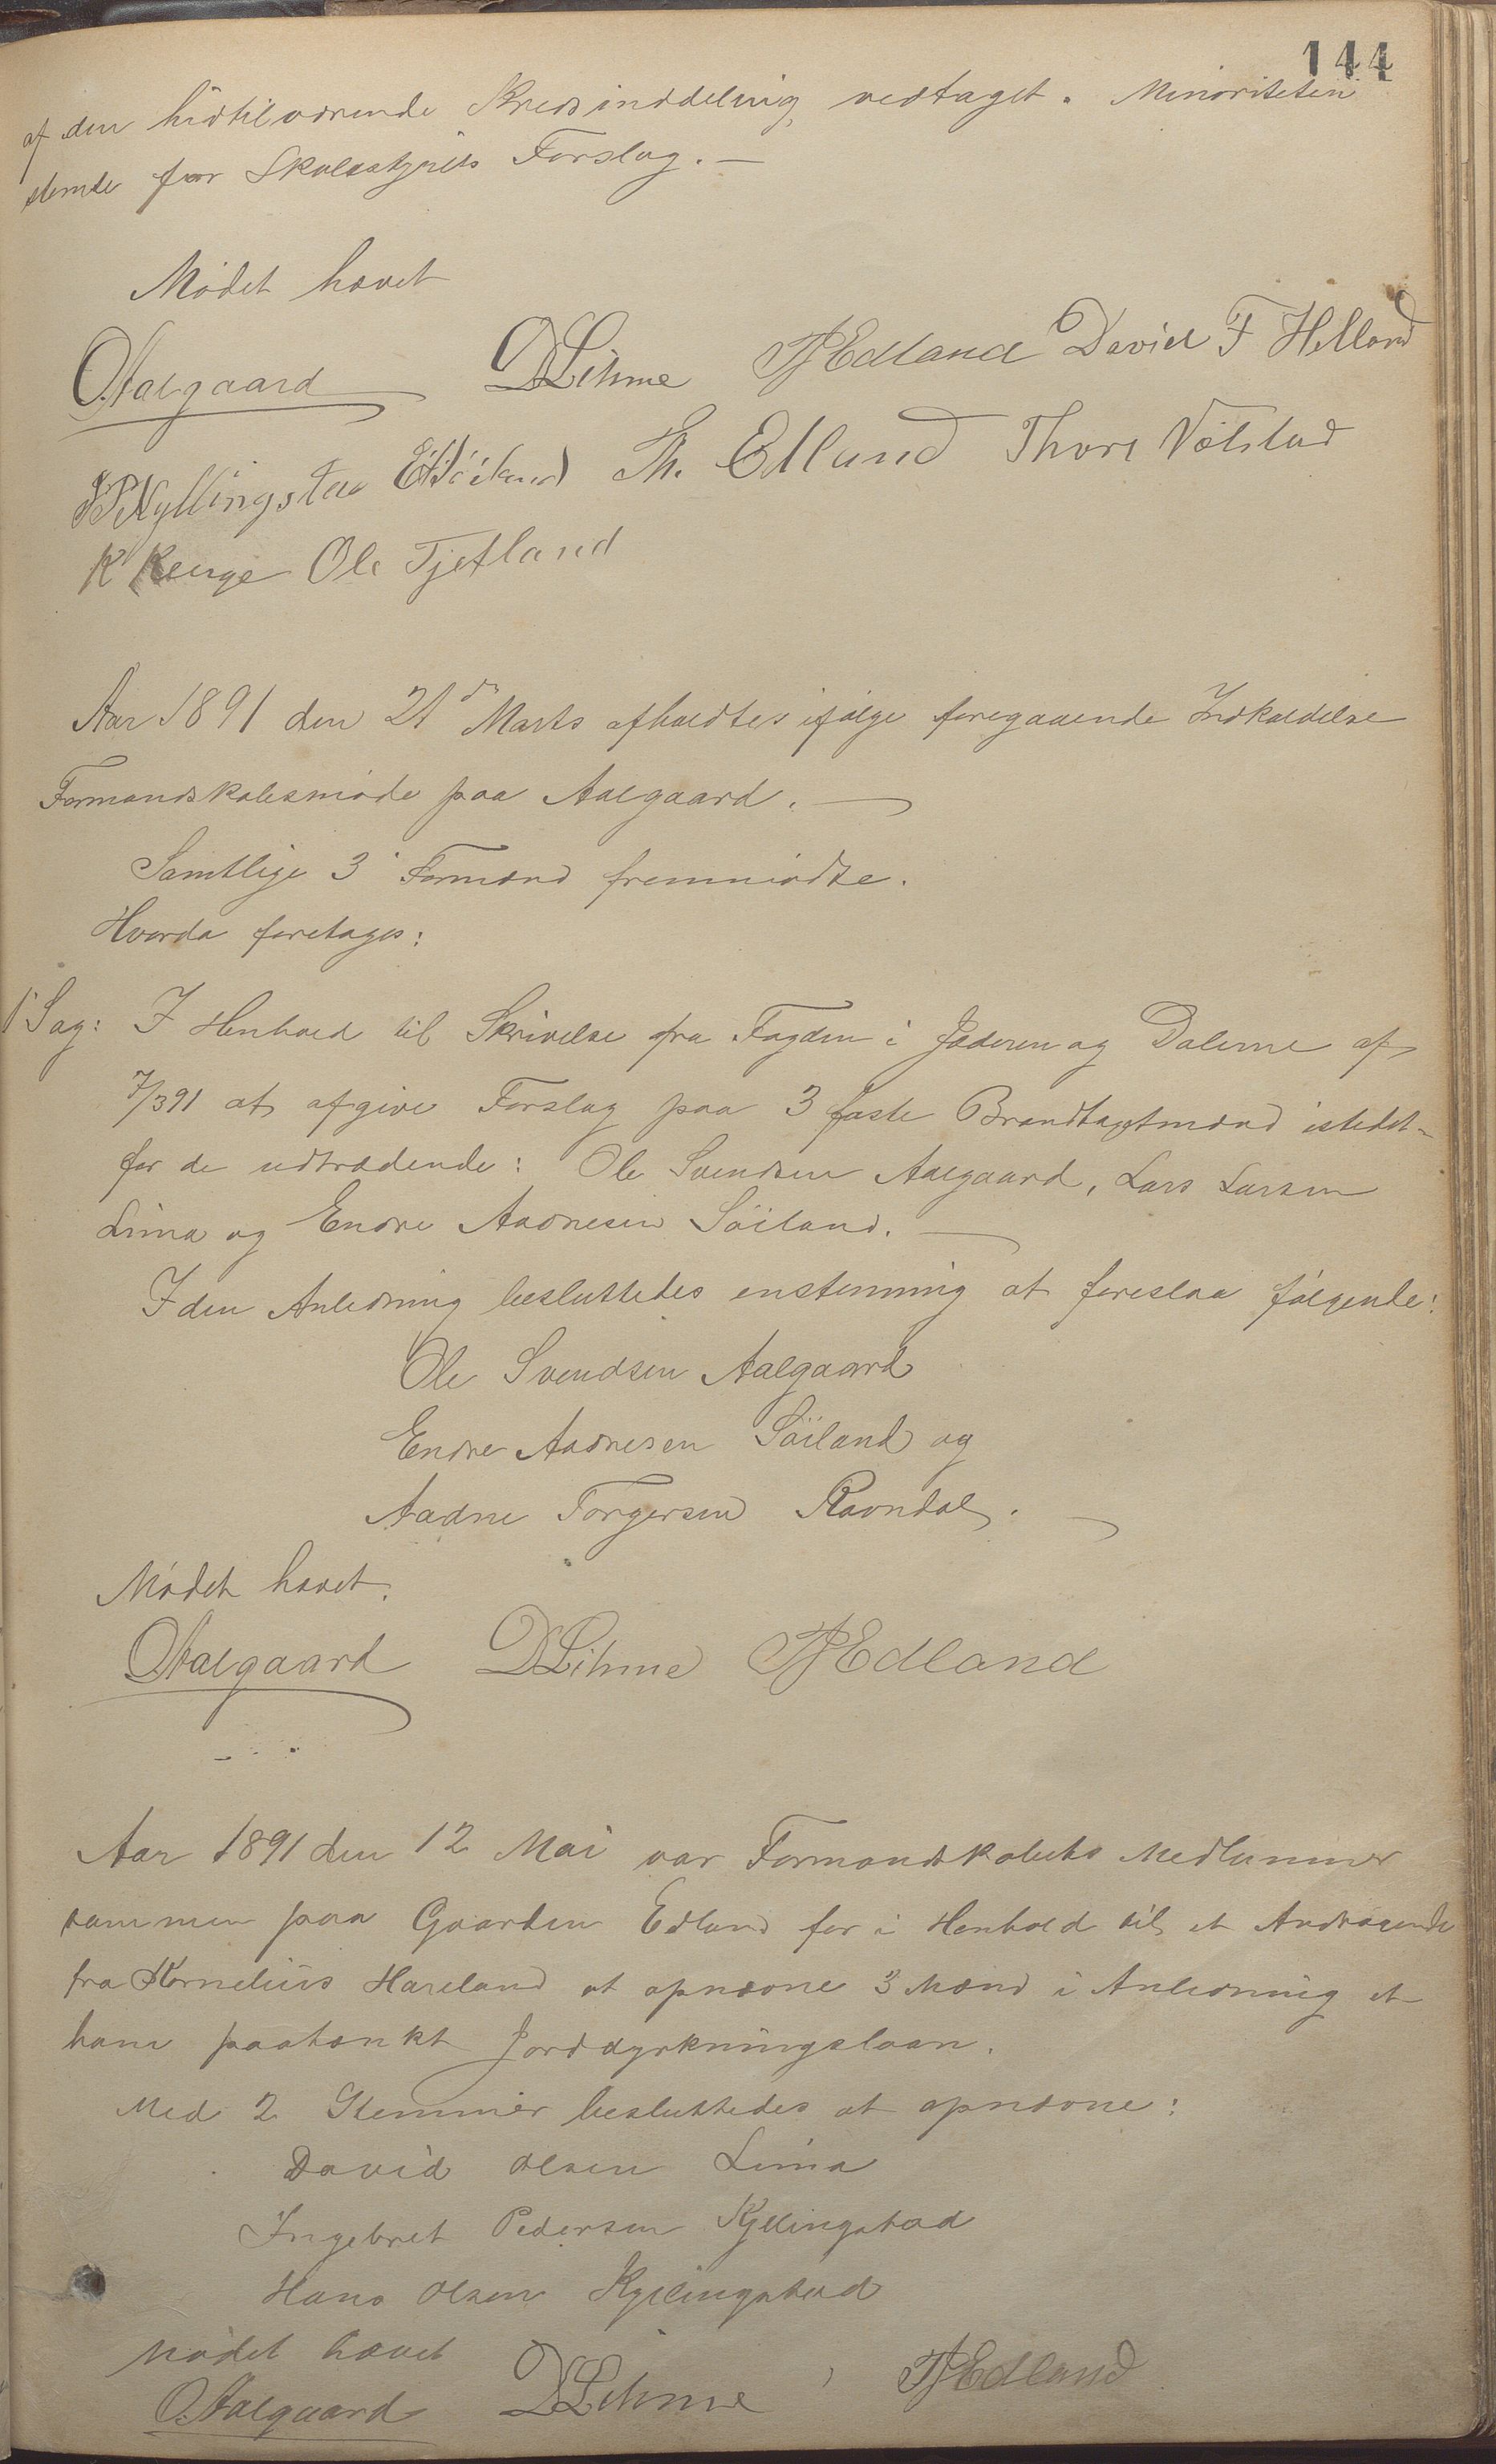 144
af den hidtilværende Kredsinddeling, vedtaget. Minoriteten
stemte for Skolestyrets Forslag. —
Mødet hævet
OAalgaard DLihme TJEdland David F Helland
IPKyllingstad EASøiland Th. Edland Thore Nolstad
K Kenge Ole Tjetland
Aar 1891 den 21de Marts afholdtes ifølge foregaaende Indkaldelse
Formandskabsmøde paa Aalgaard. —
Samtlige 3 Formænd fremmødte.
Hvorda foretages:
1 Sag: I Henhold til Skrivelse fra Fogden i Jæderen og Dalerne af
7/3 91 at afgive Forslag paa 3 faste Brandtagstmænd istedet-
for de udtrædende: Ole Svendsen Aalgaard, Lars Larsen
Lima og Endre Aadnesen Søiland. —
I den Anledning besluttedes enstemmig at foreslaa følgende:
Ole Svendsen Aalgaard
Endre Aadnesen Søiland og
Aadne Torgersen Ravndal. —
Mødet hævet.
OAalgaard DLihme TJEdland
Aar 1891 den 12 Mai var Formandskabets Medlemmer
sammen paa Gaarden Edland for i Henhold til et Andragende
fra Kornelius Hareland at opnævne 3 Mænd i Anledning et
ham paatænkt Jorddyrkningslaan.
Med 2 Stemmer besluttedes at opnævne:
David Olsen Lima
Ingebret Pedersen Kyllingstad
Hans Olsen Kyllingstad
Mødet hævet
OAalgaard DLihme TJEdland